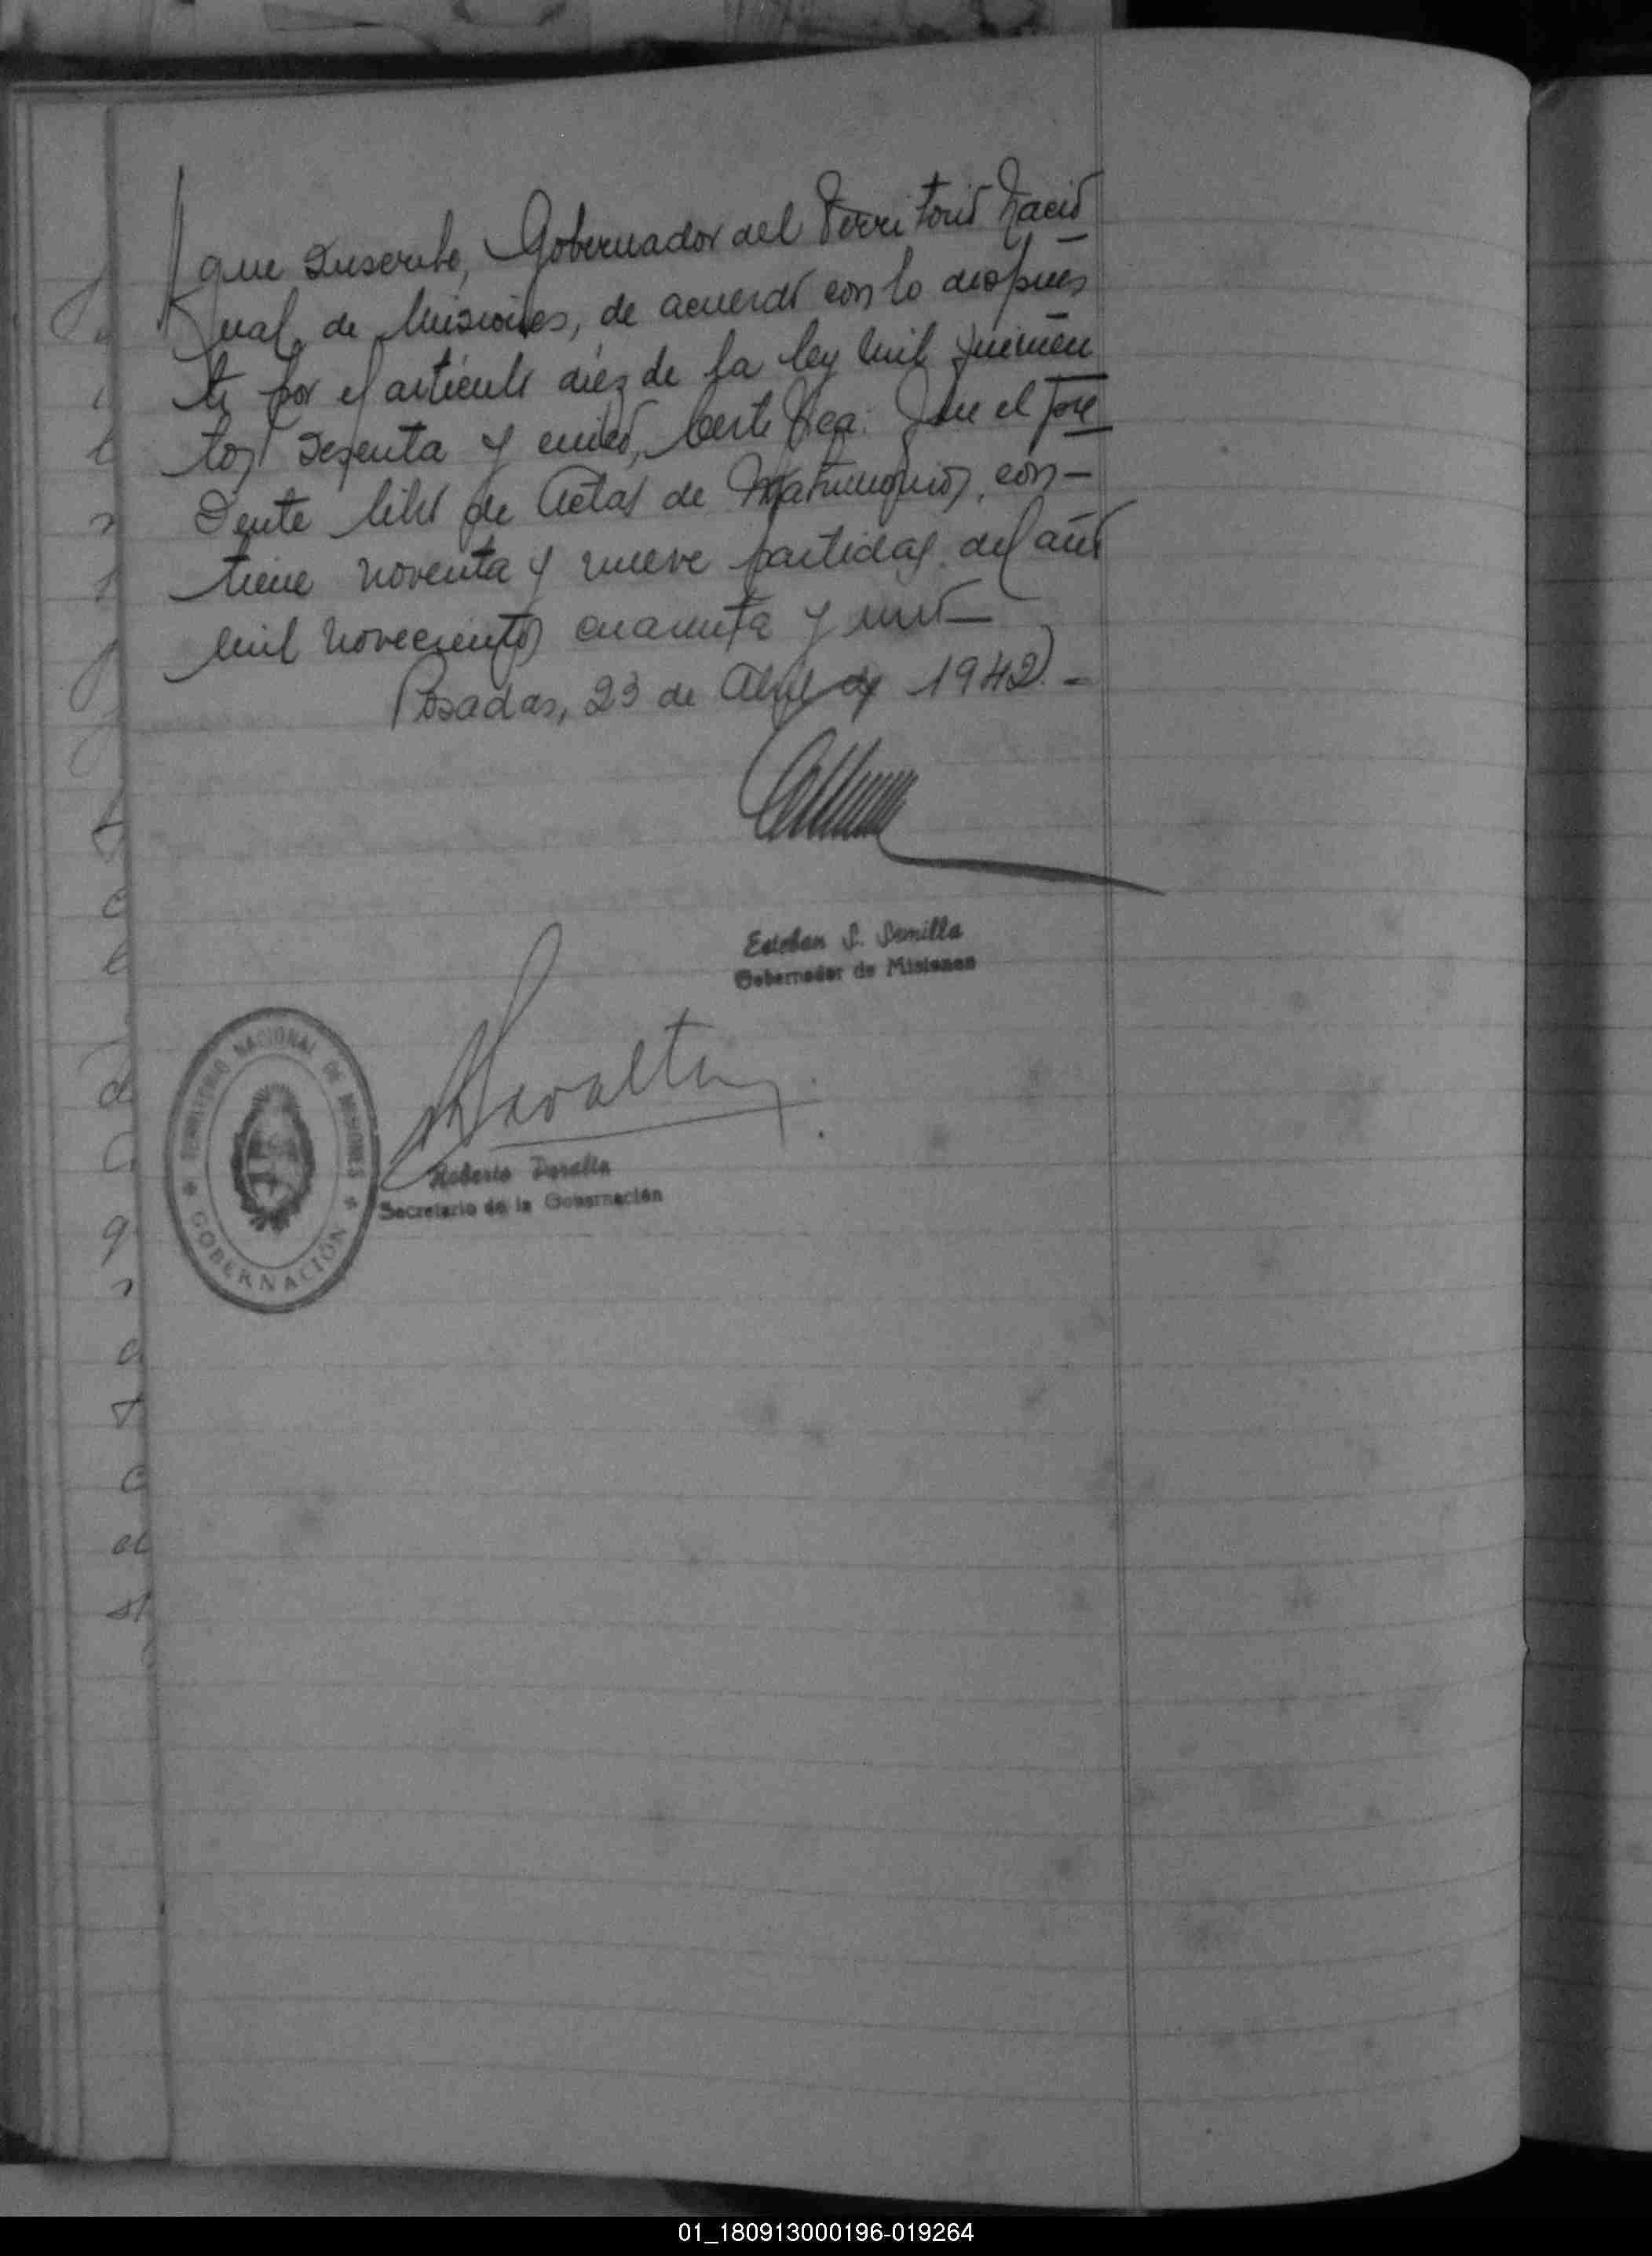 que suscribe, Gobernador del Territorio Nacio
nal de Misiones, de acuerdo con lo dispues
to por el artículo diez de la ley mil quinien
tos sesenta y cinco, Certifica: Que el pre
sente libro de Actas de Matrimonios, con-
tiene noventa y nueve partidas del año
mil novecientos cuarenta y uno—
Posadas, 23 de Abril de 1942.-
Esteban S. Semilla
Gobernador de Misiones
Peralta
Roberto Peralta
Secretario de la Gobernación
TERRITORIO NACIONAL DE MISIONES
GOBERNACIÓN
01_180913000196-019264